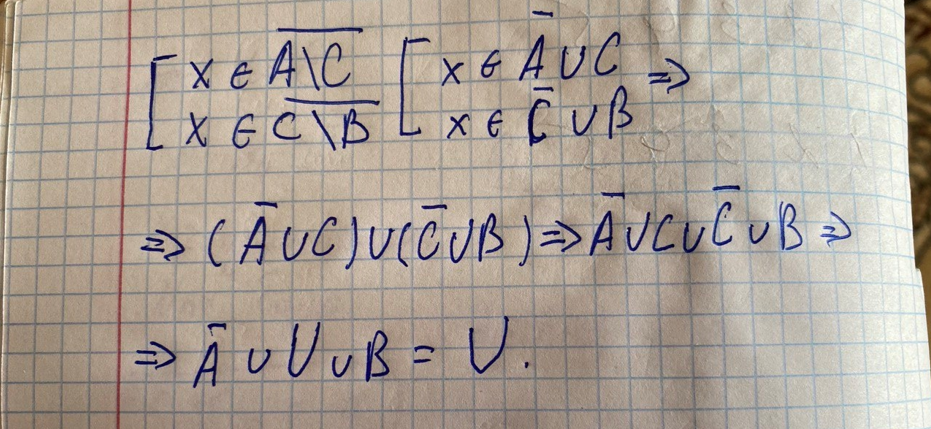 [ x ∈ A̅\̅C̅ [ x ∈ A̅ ∪ C ⇒
[ x ∈ C̅\̅B̅ [ x ∈ C̅ ∪ B
⇒ (A̅ ∪ C) ∪ (C̅ ∪ B) ⇒ A̅ ∪ C ∪ C̅ ∪ B ⇒
⇒ A̅ ∪ U ∪ B = U.